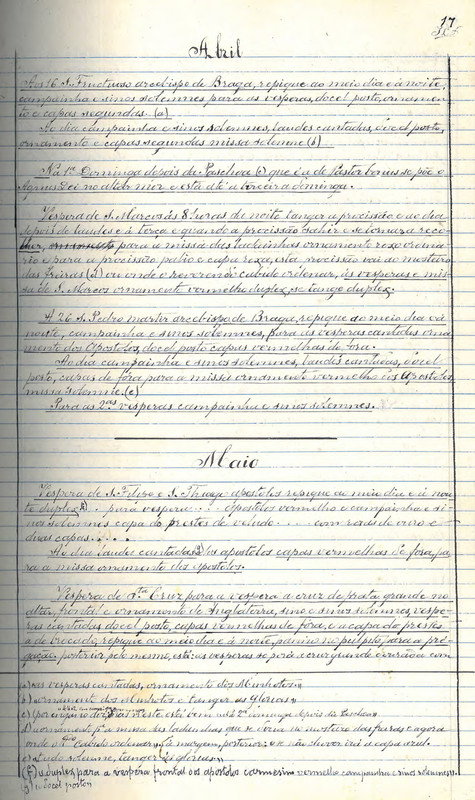 17
Abril
Aos 16 S. Fructuoso arcebispo de Braga, repique ao meio dia e á noite,
campainha e sinos solemnes, para as vesperas, docel posto, ornamen-
to e capas segundas. (a)
Ao dia campainha e sinos solemnes, laudes cantadas, docel posto,
ornamento e capas segundas missa solemne (b)
Na 1ª Dominga depois da Paschoa (c) que é a de Pastor bonus se põe o
Agnus Dei no altar mór e está até a terceira dominga.
Vespera de S. Marcos ás 8 horas da noite tanger a procissão e ao dia
depois de laudes e á terça e quando a procissão sahir e se tornar a reco-
lher, para a missa das ladainhas ornamento roxo
e para a procissão palio e capa roxa, esta procissão vai ao mosteiro
das Freiras (d) ou onde o reverendo cabido ordenar, ás vesperas e mis-
sa de S. Marcos ornamento vermelho duplex, se tange duplex.
A 26 S. Pedro martir arcebispo de Braga, repique ao meio dia e á
noite, campainha e sinos solemnes, para as vesperas cantadas orna-
mento dos Apostolos, docel posto capas vermelhas de fora.
Ao dia campainha e sinos solemnes, laudes cantadas, docel
posto, capas de fora para a missa ornamento vermelho dos Apostolos,
missa solemne. (e)
Para as 2as vesperas campainha e sinos solemnes.
Maio
Vespera de S. Filipe e S. Thiago apostolos repique ao meio dia e á noi-
te duplex (f) . . para vespera . . . Apostolos vermelho e campainha e si-
nos solemnes capa do prestes de veludo . . . com de ouro e
duas capas. . . .
Ao dia laudes cantadas (g) dos apostolos capas vermelhas de fora, pa-
ra a missa ornamento dos apostolos.
Vespera de Sta Cruz para a vespera a cruz de prata grande no
altar, frontal e ornamento de Inglaterra, sino e sinos solemnes vespe-
ras cantadas docel posto, capas vermelhas de fora, e a capa do prestes
a de brocado, repique ao meio dia e á noite, panno no pulpito para a pré-
gação, posterior, pelo mesmo, está: as vesperas se porá a cruz grande com
(a) as vesperas cantadas, ornamento dos Minhotos
b) ornamento dos Minhotos e tanger ás Glorias
c) por engano diz, mas neste está bem na 2ª dominga depois da Paschoa
d) ornamento pª a missa das ladainhas que se dizia no mosteiro das freiras e agora
onde o Cabido ordenar, á margem, posterior: e se não chover irá a capa azul.
e) tudo solemne, tanger ás glorias
(f) duplex para a vespera frontal dos apostolos carmezim vermelho campainha e sinos solemnes
g) docel posto